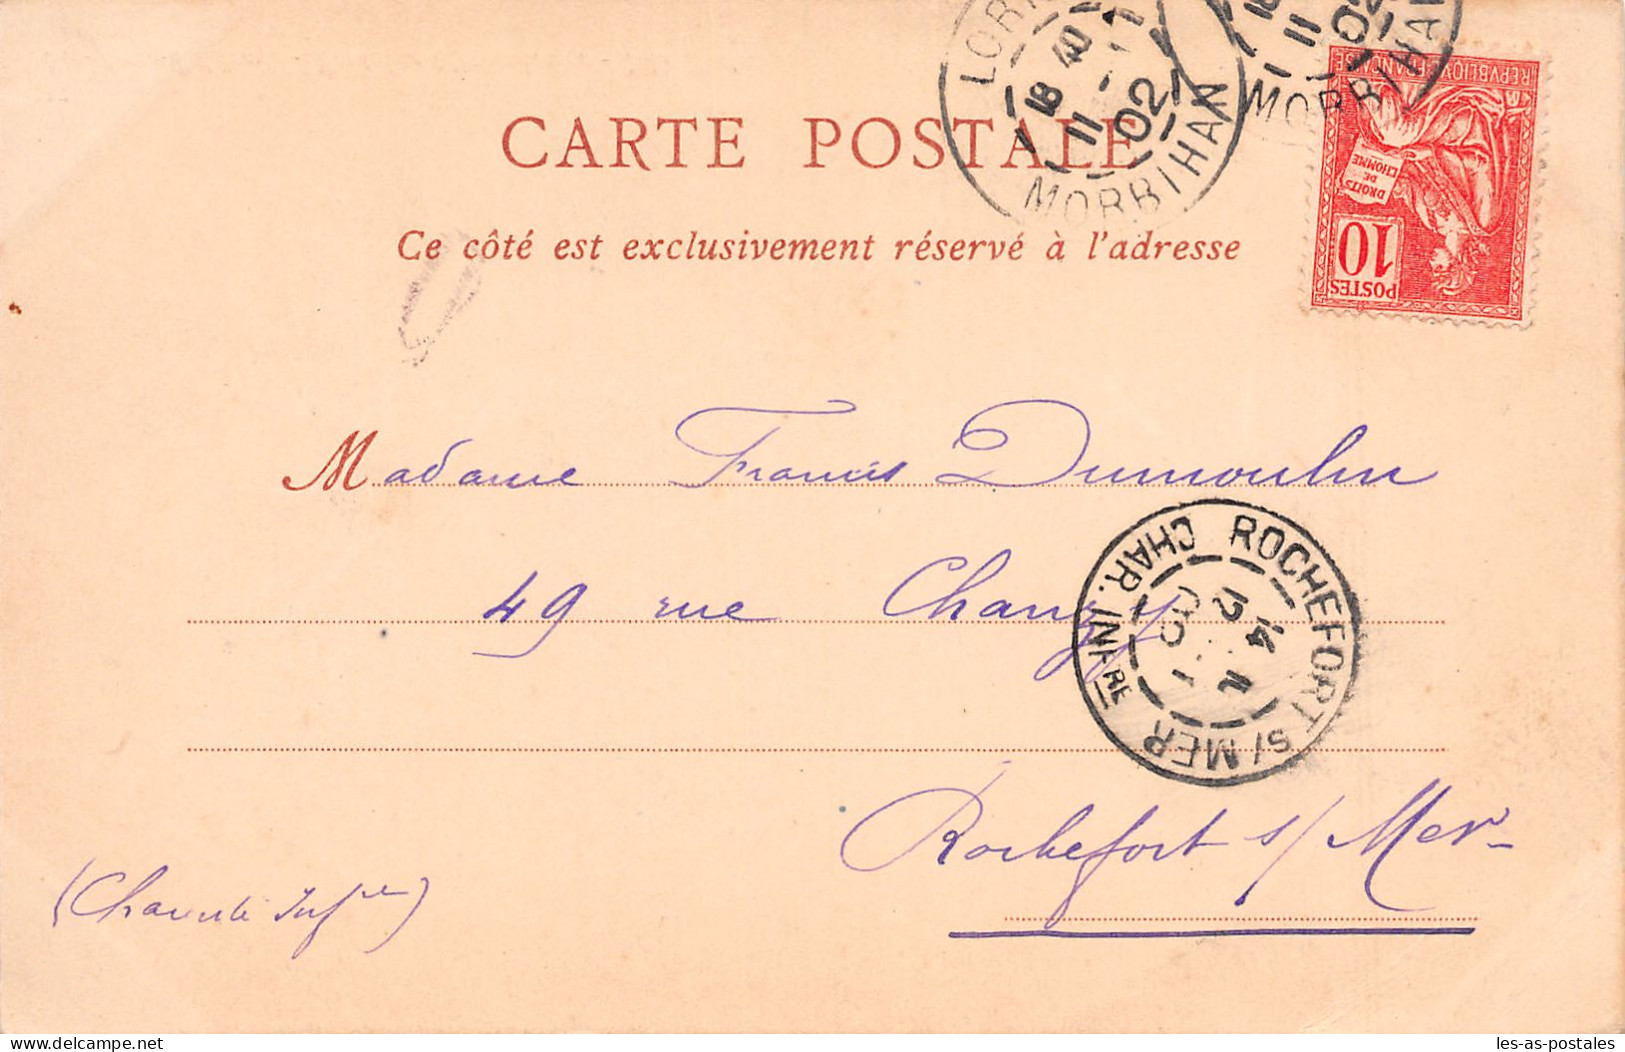 CARTE POSTALE
Ce côté est exclusivement réservé à l'adresse
MORBIHAN
18 40
11
02
MORBIHAN
11
02
REPVBLIQVE FRANÇAISE
DROITS
DE
L'HOMME
10
POSTES
Madame Francis Dumoulin
49 rue Chanzy
Rochefort s/ Mer
(Charente Infre)
ROCHEFORT S/MER
CHAR. INFRE
delcampe.net
les-as-postales